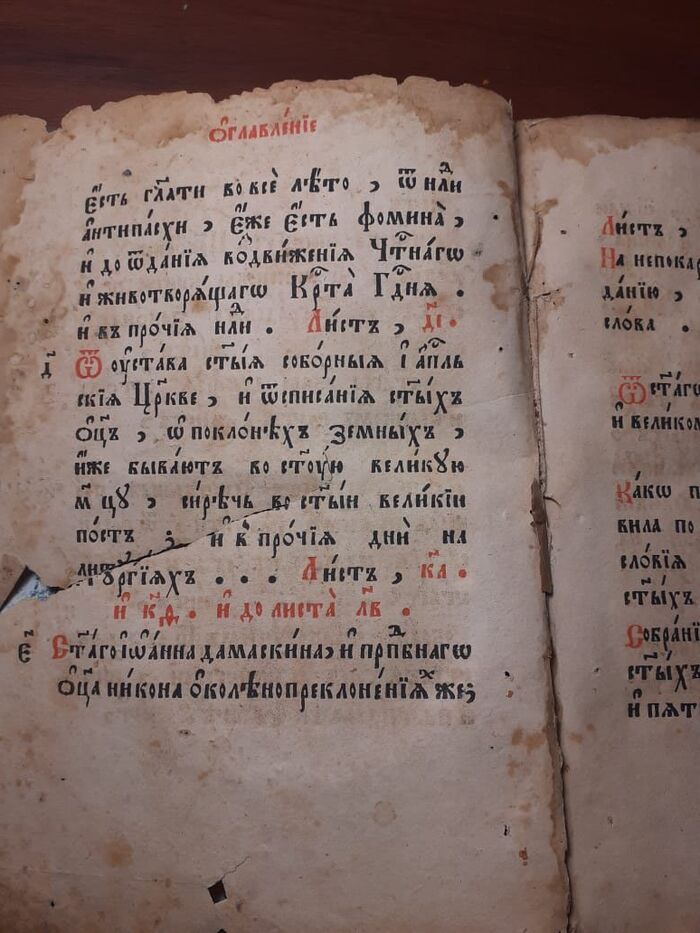 Ѻ҆главле́нїе
є҆́сть гл҃ати во всѐ лѣ́то , ѿ нлⷣи
а҆нтипа́схи , є҆́же є҆́сть ѳоминà ,
и҆ до ѿда́нїя во́здви́женїя Чтⷭ҇на́гѡ
и҆ животворѧ́щагѡ Крⷭ҇тà Гдⷭ҇ня .
и҆ въ про́чїя нлⷣи . Ли́стъ , д҃і .
д҃ Ѿ оу҆ста́ва ст҃ы́ѧ собо́рныѧ і҆ а҆пⷭ҇ль
скїѧ Цр҃кве , и҆ ѿ списа́нїѧ ст҃ы́хъ
ѻ҆ц҃ъ , ѡ҆ поклонѣ́хъ земны́хъ ,
и҆́же быва́ютъ во ст҃у́ю вели́кую
м҃цу , си́рѣчь во ст҃ы́и вели́кїи
по́стъ ; и҆ в про́чїѧ дни̑ на
литургїѧхъ . . . Ли́стъ , к҃а .
и҆ к҃ѳ . и҆ до листа̀ л҃в .
є҃ Ст҃а́го і҆ѡа́нна дамаскина̀ , и҆ прпⷣбнагѡ
ѻ҆ц҃а ни́кона ѻ҆ колѣнопреклоне́нїиⷯ же ;
Ли́стъ ,
На непока
да́нїю ,
сло́ва .
Ѿ ст҃а́гѡ
и҆ велико
Ка́кѡ п
вила по
сло́вїѧ
ст҃ы́хъ
Собра́нї
ст҃ы́хъ
и҆ пѧт